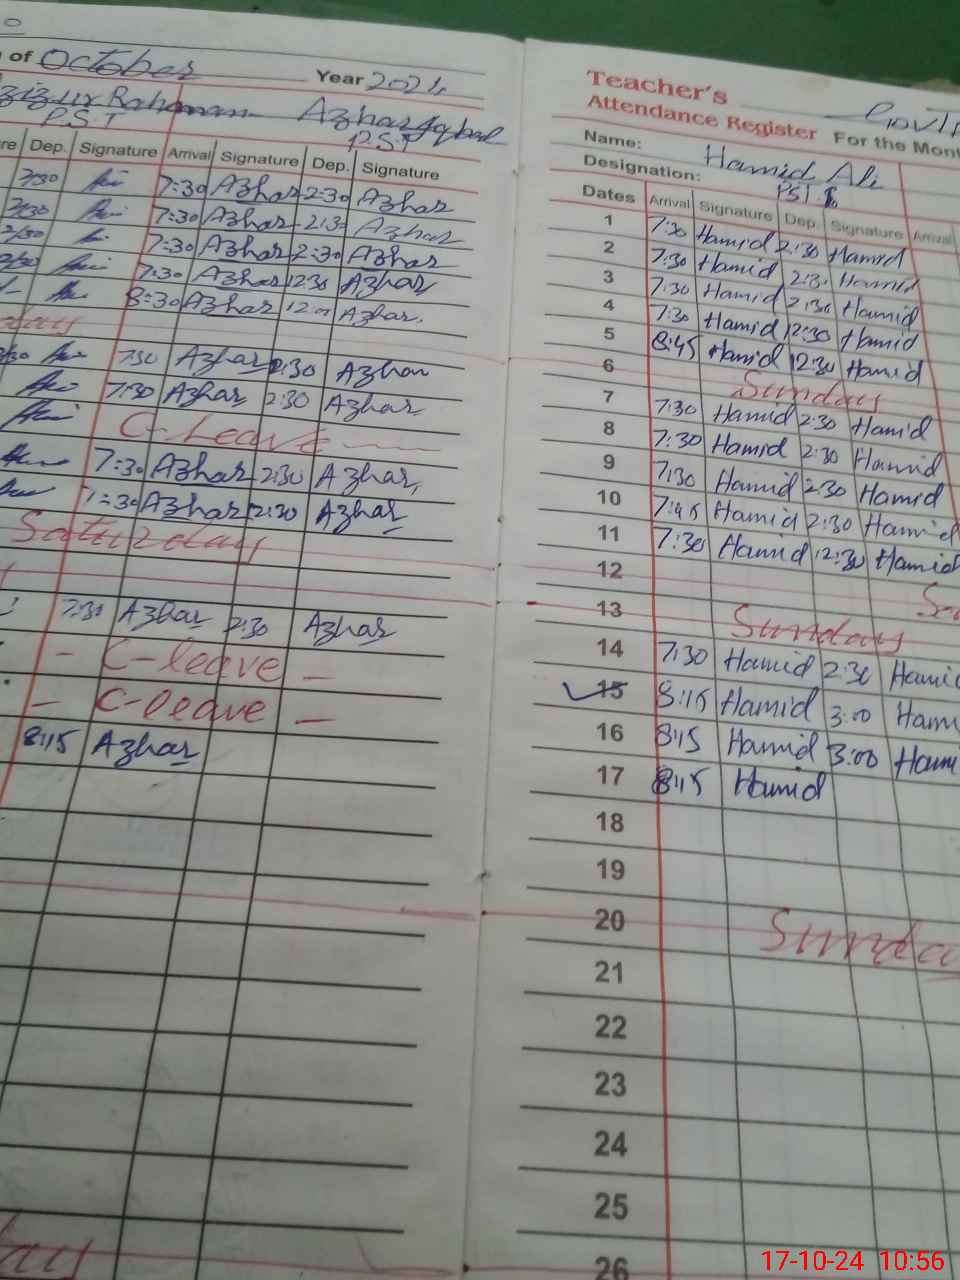 of October Year 2024
Rahman Azhar Iqbal
P.S.T P.S.T
Dep. Signature Arrival Signature Dep. Signature
7:30 Azhar 2:30 Azhar
7:30 Azhar 2:30 Azhar
7:30 Azhar 2:30 Azhar
7:30 Azhar 12:30 Azhar
8:30 Azhar 12:00 Azhar
7:30 Azhar 2:30 Azhar
7:30 Azhar 2:30 Azhar
C-Leave
7:30 Azhar 2:30 Azhar
7:30 Azhar 12:30 Azhar
7:30 Azhar 2:30 Azhar
- C-leave -
- C-leave -
8:15 Azhar
Teacher's
Attendance Register For the Mont
Name: Hamid Ali
Designation: PST
Dates Arrival Signature Dep. Signature Arrival
1 7:30 Hamid 2:30 Hamid
2 7:30 Hamid 2:30 Hamid
3 7:30 Hamid 2:30 Hamid
4 7:30 Hamid 12:30 Hamid
5 8:45 Hamid 12:30 Hamid
6 Sunday
7 7:30 Hamid 2:30 Hamid
8 7:30 Hamid 2:30 Hamid
9 7:30 Hamid 2:30 Hamid
10 7:45 Hamid 2:30 Hamid
11 7:30 Hamid 12:30 Hamid
12
13 Sunday
14 7:30 Hamid 2:30 Hami
15 8:15 Hamid 3:00 Ham
16 8:15 Hamid 3:00 Hami
17 8:15 Hamid
18
19
20 Sunda
21
22
23
24
25
26
17-10-24 10:56